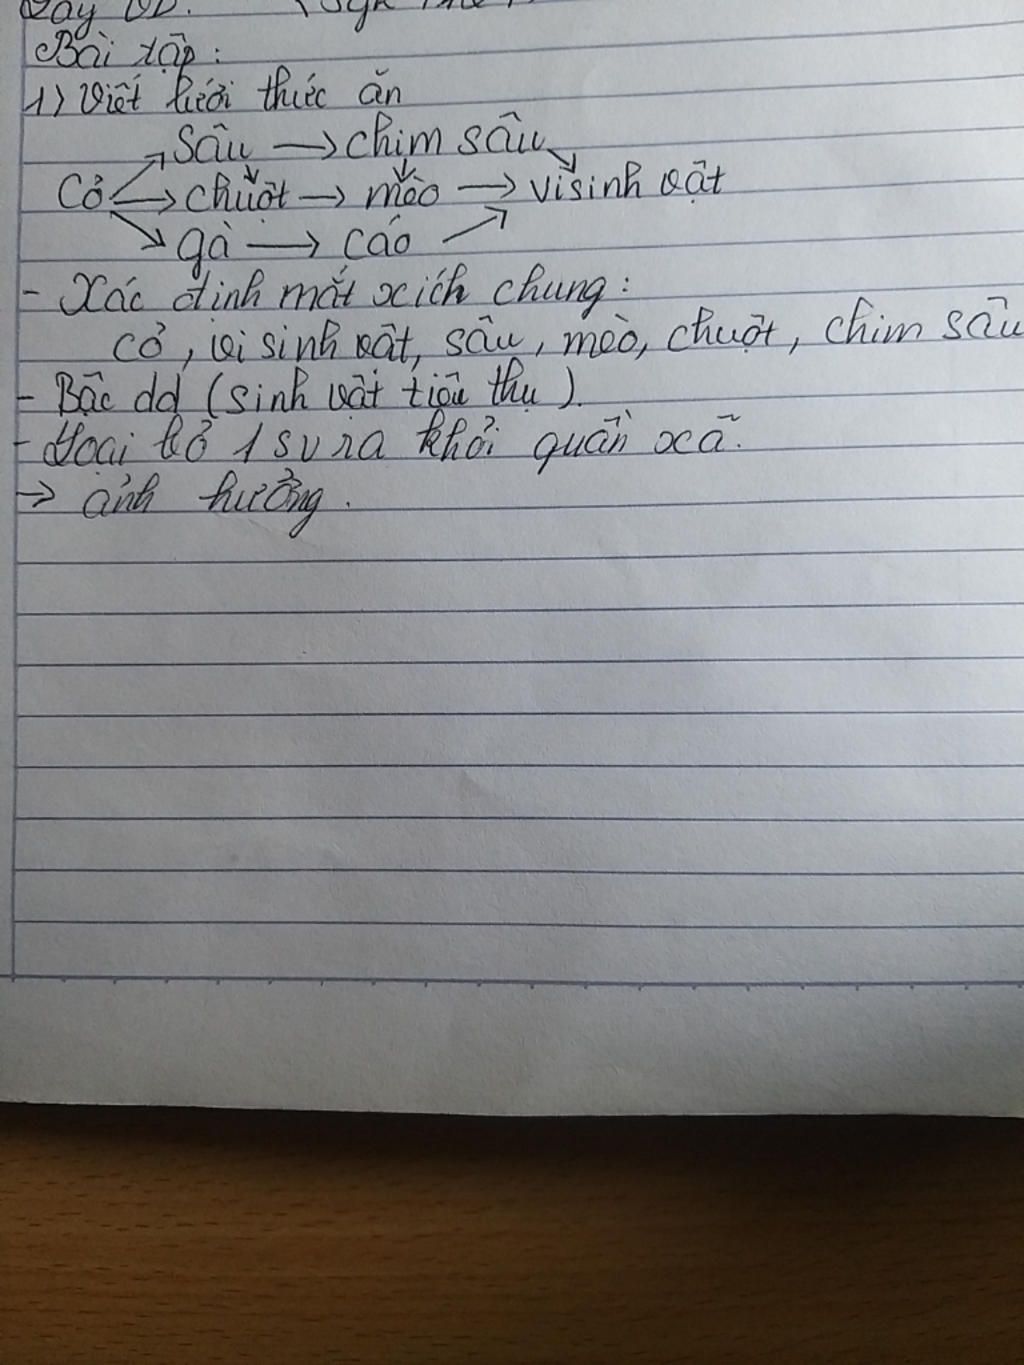 Bài tập:
1) Viết lưới thức ăn
Sâu → chim sâu
Cỏ → chuột → mèo → vi sinh vật
gà → cáo
- Xác định mắt xích chung:
cỏ, vi sinh vật, sâu, mèo, chuột, chim sâu
- Bậc dd (sinh vật tiêu thụ).
- Loại bỏ 1 SV ra khỏi quần xã.
→ ảnh hưởng.